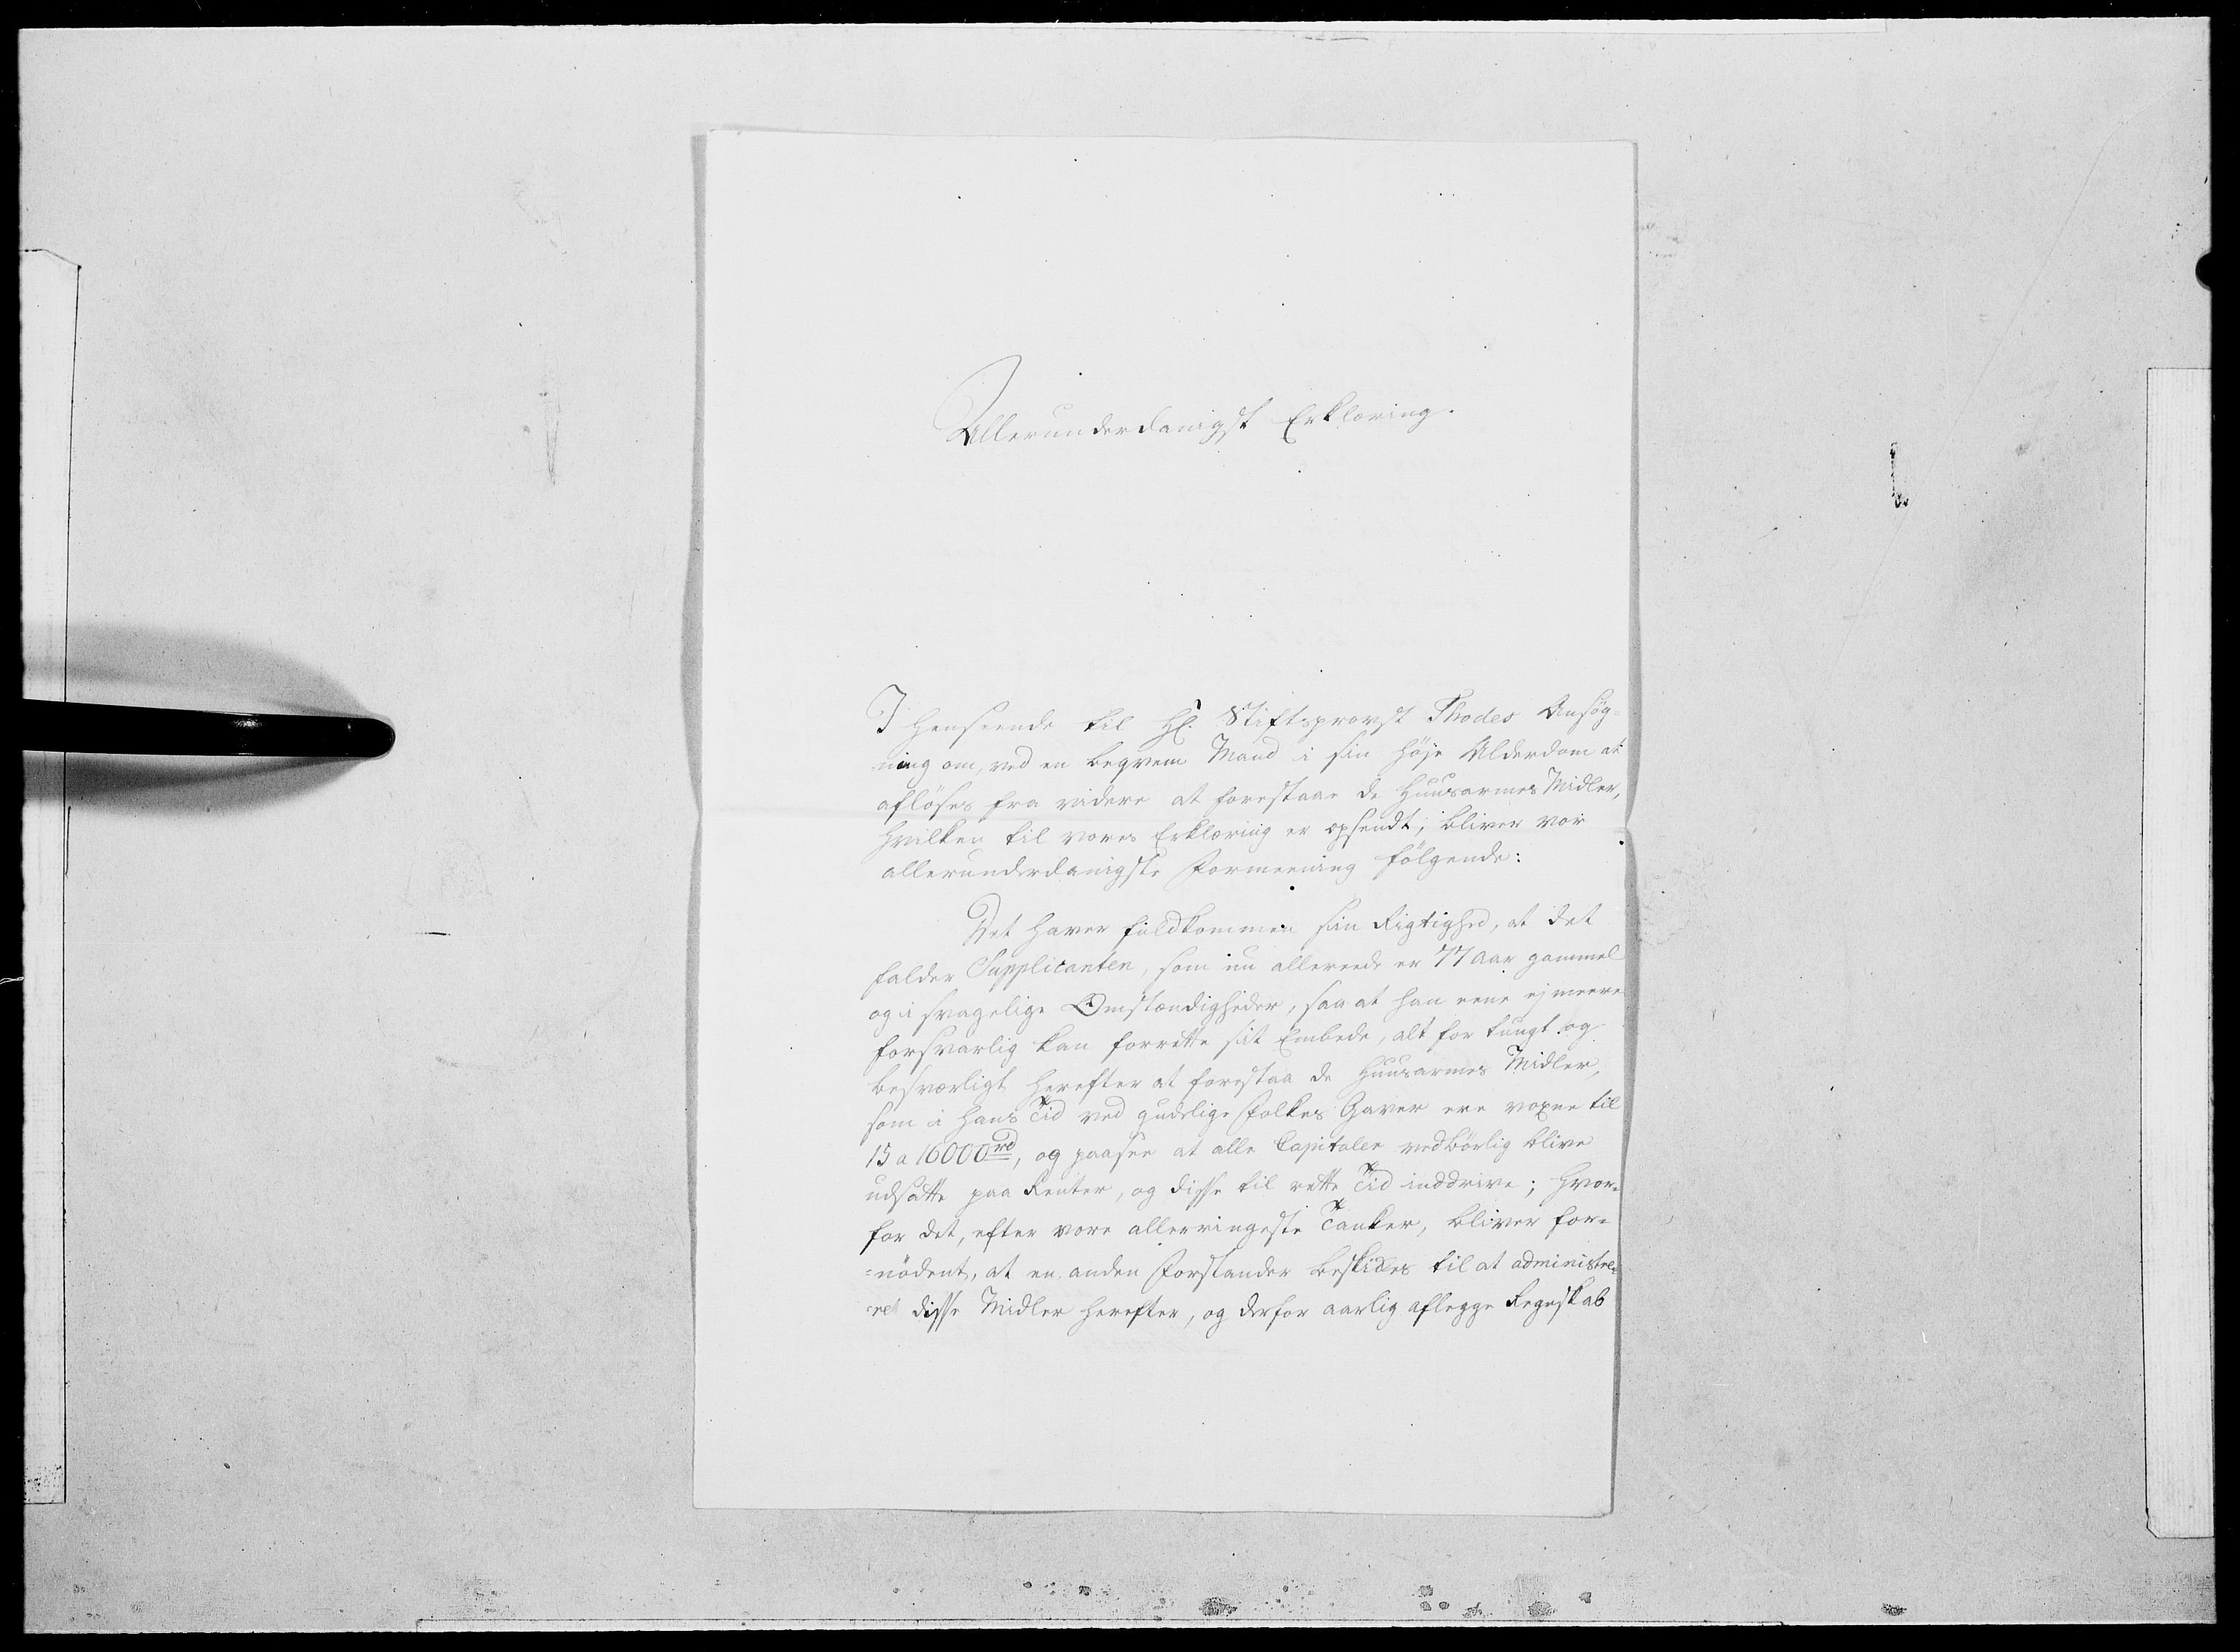 Allerunderdanigst Erklæring.
I henseende til Hr. Stiftsprovst Thodes Ansøg-
ning om, ved en beqvem Mand i sin høje Alderdom at
afløses fra videre at forestaae de Huusarmes Midler,
hvilken til vores Erklæring er opsendt, bliver vor
allerunderdanigste Formeening følgende:
Det haver fuldkommen sin Rigtighed, at det
falder Supplicanten, som nu allereede er 77 aar gammel
og i svagelige Omstændigheder, saa at han eene ej meere
forsvarlig kan forrette sit Embede, alt for tungt og
besværligt herefter at forestaa de Huusarmes Midler,
som i hans Tid ved gudelige Folkes Gaver ere voxne til
15 a 16000 rd, og paasee at alle Capitaler vedbørlig blive
udsatte paa Renter, og disse til rette Tid inddrive; hvor-
for det, efter vore allerringeste Tanker, bliver for-
=nødent, at en anden Forstander beskikkes til at administre=
=re disse Midler herefter, og derfor aarlig aflegge Regnskab